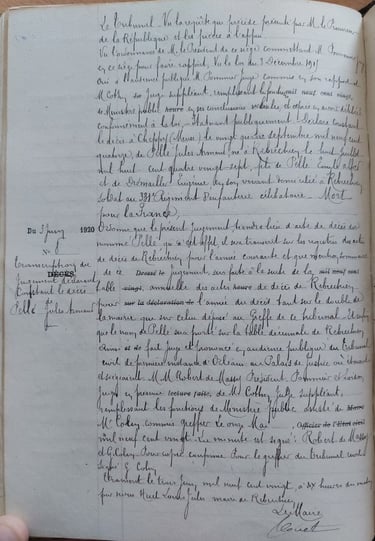 Le Tribunal. Vu la requête qui précède présentée par M. le Procureur
de la République et les pièces à l'appui
Vu l'ordonnance de M. le Président de ce siège commettant M. Pommier
en ce siège pour faire rapport, Vu la loi du 3 Décembre 1915
Ouï à l'audience publique M. Pommier juge commis en son rapport
M. Cothy Juge suppléant, remplissant les fonctions
de Ministère public en ses conclusions et après en avoir délibéré
conformément à la loi. Statuant publiquement Déclare constant
le décès à Cheppy (Meuse) le vingt quatre septembre mil neuf cent
quatorze, de Pellé Jules Armand né à Rebréchien le huit
mil huit cent quatre vingt sept, fils de Pellé Emile
et de Eugénie en son vivant domicilié à Rebréchien
soldat au 331e Régiment d'infanterie célibataire. Mort
pour la France,
Du 3 Juin 1920
Nº
transcription du
DÉCÈS
jugement déclarant
constant le décès
Pellé Jules Armand
Ordonne que le présent jugement tiendra lieu d'acte de décès du
nommé Pellé, qu'il sera transcrit sur les registres des actes
de décès de Rebréchien pour l'année courante et que mention sommaire
de ce jugement, sera faite à la suite de la
table annuelle des actes de décès de Rebréchien
pour sur la déclaration de l'année du décès tant sur le double de
la mairie que sur celui déposé au Greffe de ce tribunal et enfin
que le nom de Pellé sera porté sur la table décennale de Rebréchien
Ainsi fait jugé et prononcé en audience publique du Tribunal
civil de première instance d'Orléans au Palais de Justice où étaient
et siégeaient M.M. Robert de Massy Président, Pommier et
Juges en présence de M. Cothy Juge suppléant,
remplissant les fonctions de Ministère public assisté de
M. Coley commis greffier Le onze Mai Officier de l'état civil
mil neuf cent vingt. La minute est signée : Robert de Massy
et G. Coley. Pour copie conforme Pour le greffier du tribunal civil
signé G. Coley
Transcrit le trois Juin, mil neuf cent vingt, à dix heures du matin
par nous Huet Louis Jules maire de Rebréchien
Le Maire